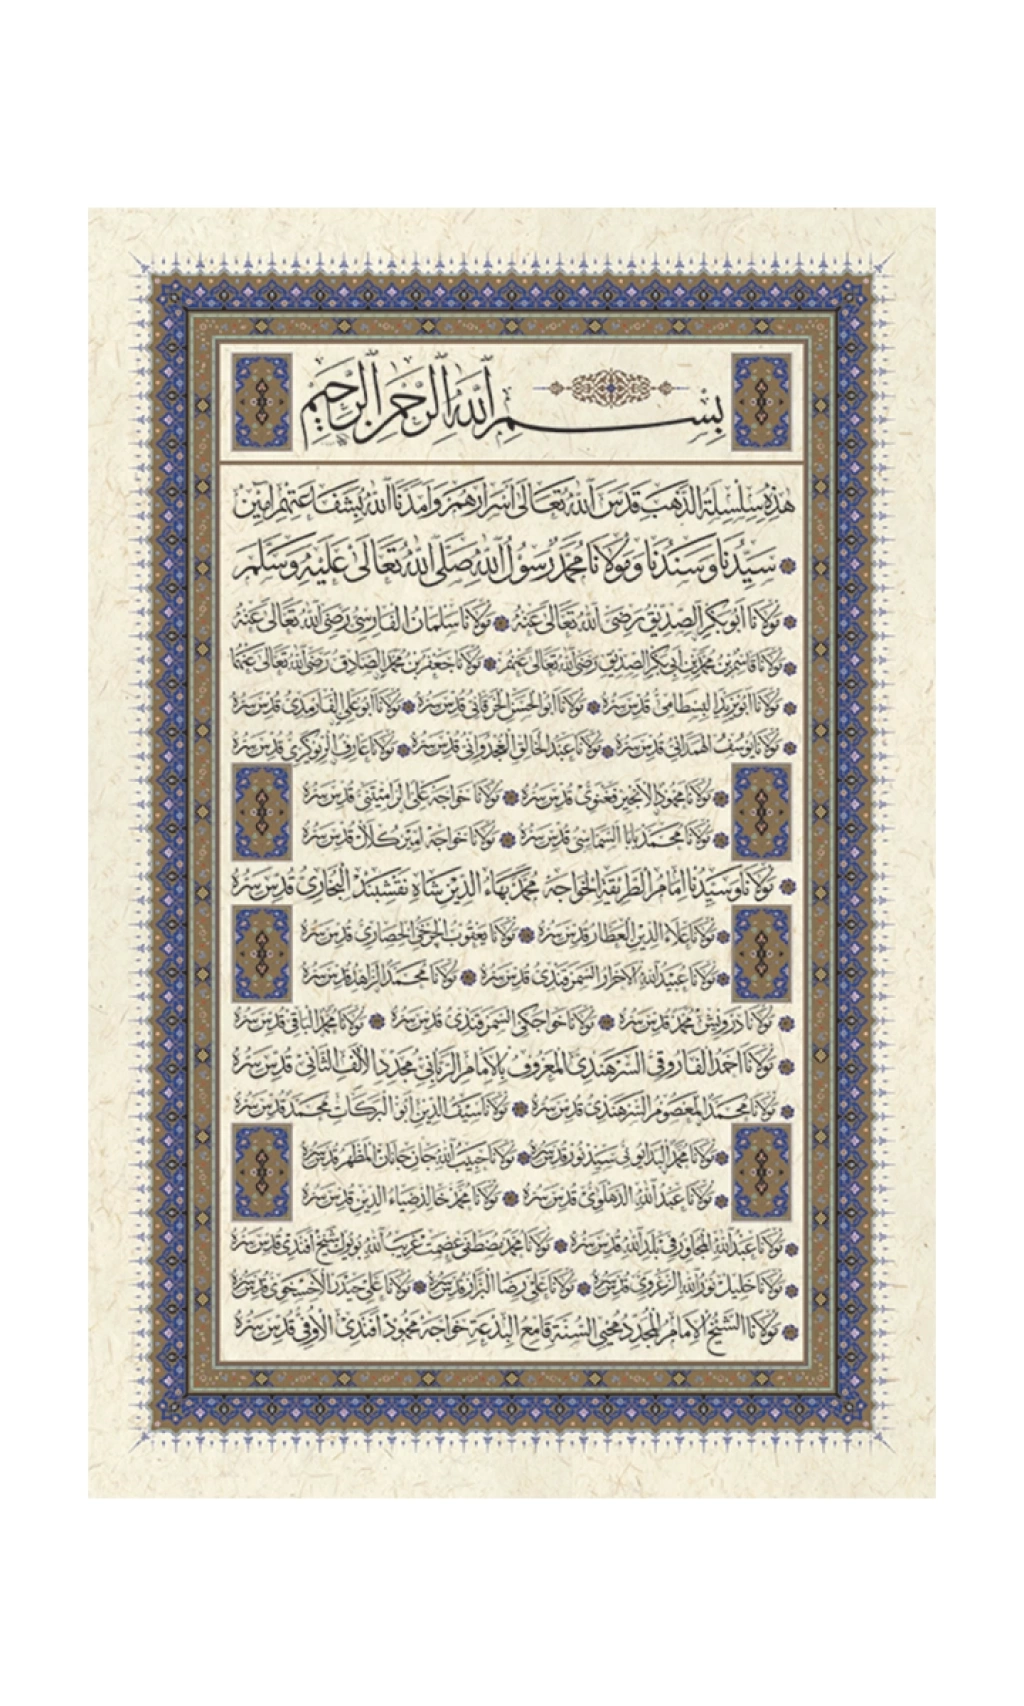 بسم الله الرحمن الرحيم
هذه سلسلة الذهب قدس الله تعالى أسرارهم وأمدنا الله بشفاعتهم آمين
سيدنا وسندنا ومولانا محمد رسول الله صلى الله تعالى عليه وسلم
مولانا أبو بكر الصديق رضي الله تعالى عنه مولانا سلمان الفارسي رضي الله تعالى عنه
مولانا قاسم بن محمد بن أبي بكر الصديق رضي الله تعالى عنهم مولانا جعفر بن محمد الصادق رضي الله تعالى عنهما
مولانا أبو يزيد البسطامي قدس سره مولانا أبو الحسن الخرقاني قدس سره مولانا أبو علي الفارمدي قدس سره
مولانا يوسف الهمداني قدس سره مولانا عبد الخالق الغجدواني قدس سره مولانا عارف الريوكري قدس سره
مولانا محمود الانجير فغنوي قدس سره مولانا خواجه علي الراميتني قدس سره
مولانا محمد بابا السماسي قدس سره مولانا خواجه أمير كلال قدس سره
مولانا وسيدنا إمام الطريقة الخواجه محمد بهاء الدين شاه نقشبند البخاري قدس سره
مولانا علاء الدين العطار قدس سره مولانا يعقوب الجرخي الحصاري قدس سره
مولانا عبيد الله الاحرار السمرقندي قدس سره مولانا محمد الزاهد قدس سره
مولانا درويش محمد قدس سره مولانا خواجكي السمرقندي قدس سره مولانا محمد الباقي قدس سره
مولانا أحمد الفاروقي السرهندي المعروف بالإمام الرباني مجدد الألف الثاني قدس سره
مولانا محمد المعصوم السرهندي قدس سره مولانا سيف الدين أبو البركات محمد قدس سره
مولانا محمد البدايوني سيد نور قدس سره مولانا حبيب الله جان جانان المظهر قدس سره
مولانا عبد الله الدهلوي قدس سره مولانا محمد خالد ضياء الدين قدس سره
مولانا عبد الله المجاور في بلد الله قدس سره مولانا محمد مصطفى عصمت غريب الله بويوك شيخ أفندي قدس سره
مولانا خليل نور الله الزغروي قدس سره مولانا علي رضا البزازي قدس سره مولانا علي حيدر الأخسخوي قدس سره
مولانا الشيخ الإمام المجدد محيي السنة قامع البدعة خواجه محمود أفندي الأوفي قدس سره